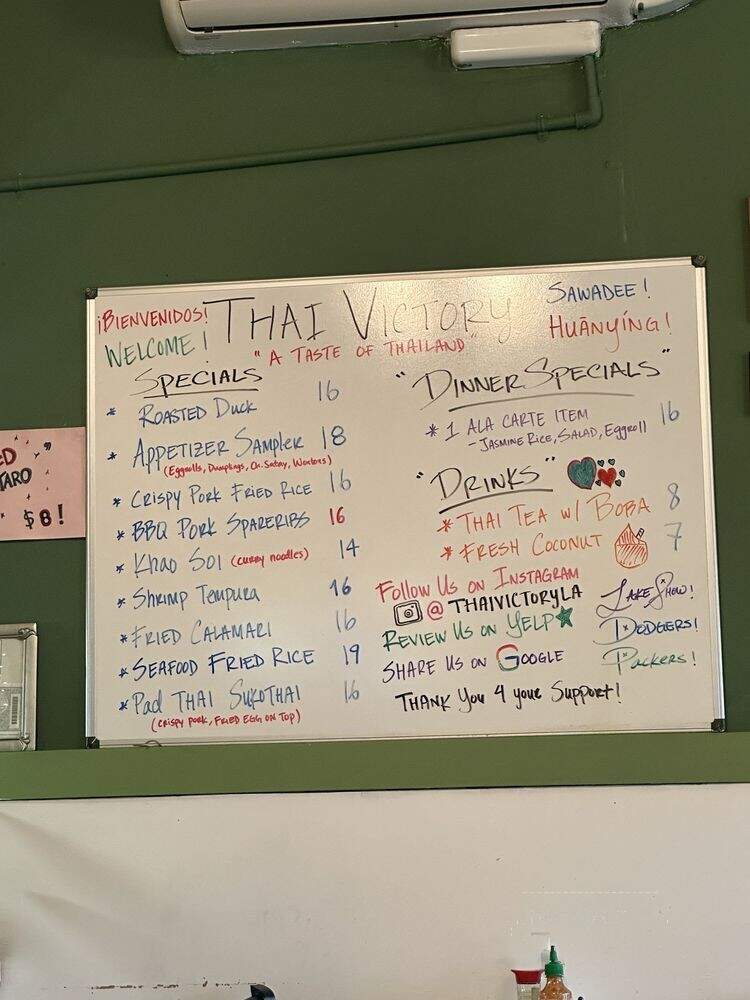 ¡BIENVENIDOS!
WELCOME!
THAI VICTORY
"A TASTE OF THAILAND"
SAWADEE!
HUĀNYÍNG!
SPECIALS
* ROASTED DUCK 16
* APPETIZER SAMPLER 18
(Eggrolls, Dumplings, Ch. Satay, Wontons)
* CRISPY PORK FRIED RICE 16
* BBQ PORK SPARERIBS 16
* Khao Soi (curry noodles) 14
* Shrimp Tempura 16
* FRIED CALAMARI 16
* SEAFOOD FRIED RICE 19
* Pad THAI SUKOTHAI 16
(CRISPY PORK, FRIED EGG ON TOP)
"DINNER SPECIALS"
* 1 ALA CARTE ITEM 16
- JASMINE RICE, SALAD, Eggroll
"DRINKS"
* THAI TEA W/ BOBA 8
* FRESH COCONUT 7
Follow Us on INSTAGRAM
@THAIVICTORYLA
REVIEW US ON YELP
SHARE US ON GOOGLE
THANK YOU 4 YOUR SUPPORT!
LAKE SHOW!
DODGERS!
Packers!
ED
TARO
$8!